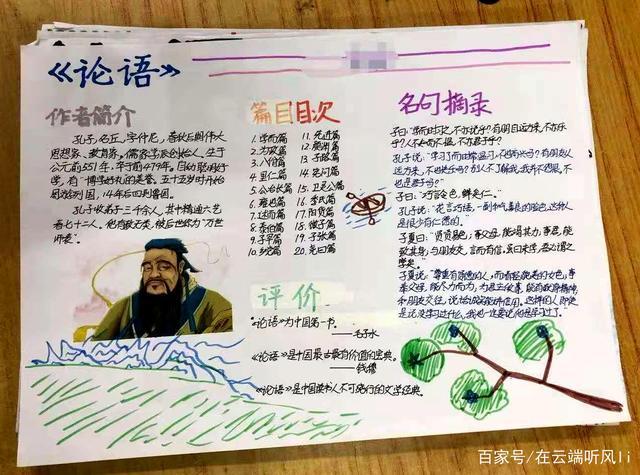 《论语》
作者简介
孔子,名丘,字仲尼,春秋后期伟大
思想家、教育家。儒家学派创始人,生于
公元前551年,卒于前479年。自幼聪明好
学,有“博学好礼的美誉。五十五岁时开始
周游列国,14年后回到鲁国。
孔子收弟子三千余人,其中精通六艺
者七十二人。他有教无类,被后世称为“万世
师表”。
篇目目次
1.学而篇 11.先进篇
2.为政篇 12.颜渊篇
3.八佾篇 13.子路篇
4.里仁篇 14.宪问篇
5.公冶长篇 15.卫灵公篇
6.雍也篇 16.季氏篇
7.述而篇 17.阳货篇
8.泰伯篇 18.微子篇
9.子罕篇 19.子张篇
10.乡党篇 20.尧曰篇
评价
《论语》为中国第一书。
——毛子水
《论语》是中国最古最有价值的宝典。
——钱穆
《论语》是中国读书人不可绕行的文学经典。
名句摘录
子曰:“学而时习之,不亦说乎?有朋自远方来,不亦乐
乎?人不知而不愠,不亦君子乎?
孔子说:“学习了而时常温习,不也高兴吗?有朋友从
远方来,不也快乐吗?别人不了解我,我并不怨恨,不
也是君子吗?
子曰:“巧言令色,鲜矣仁。”
孔子说:“花言巧语,一副和气善良的脸色,这种人
是很少有仁德的。”
子夏曰:“贤贤易色;事父母,能竭其力;事君,能
致其身;与朋友交,言而有信。虽曰未学,吾必谓之
学矣。”
百家号/在云端听风li